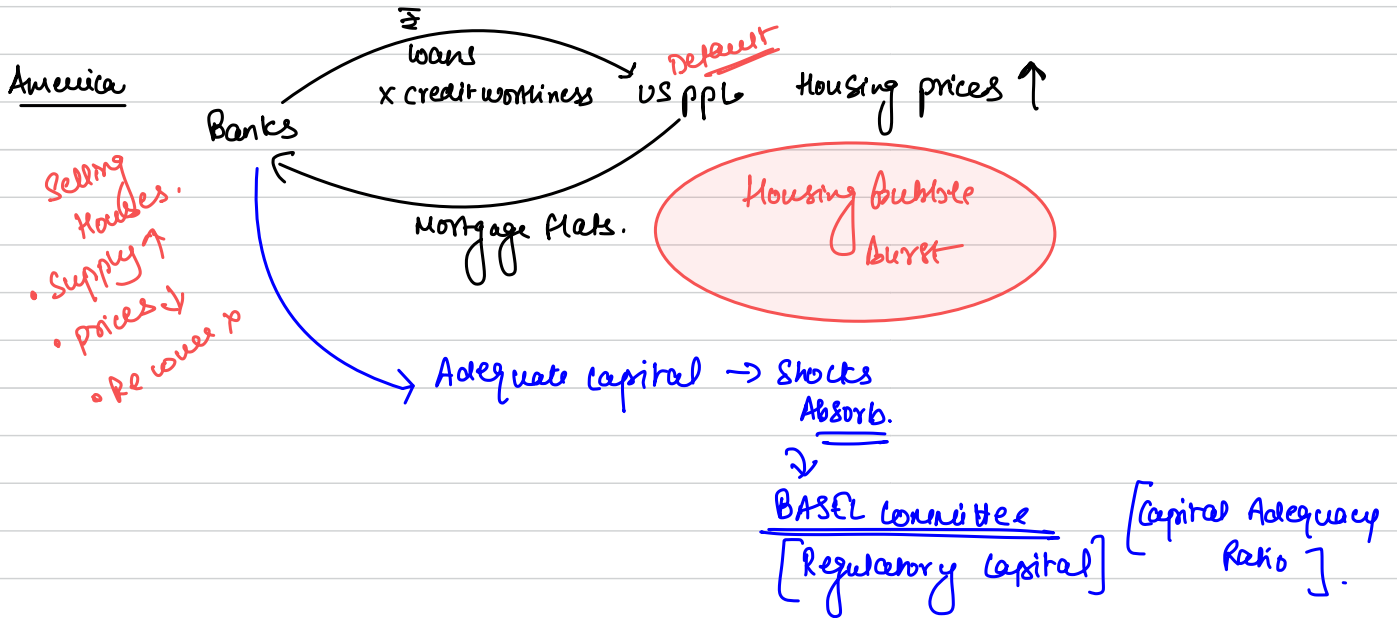 America
loans
x creditworthiness
Banks
US ppl
Default
Housing prices ↑
Mortgage flats.
Housing Bubble
Burst
Selling
Houses.
• Supply ↑
• prices ↓
• Recover x
Adequate capital → Shocks
Absorb.
BASEL Committee
[Regulatory Capital]
[Capital Adequacy
Ratio].